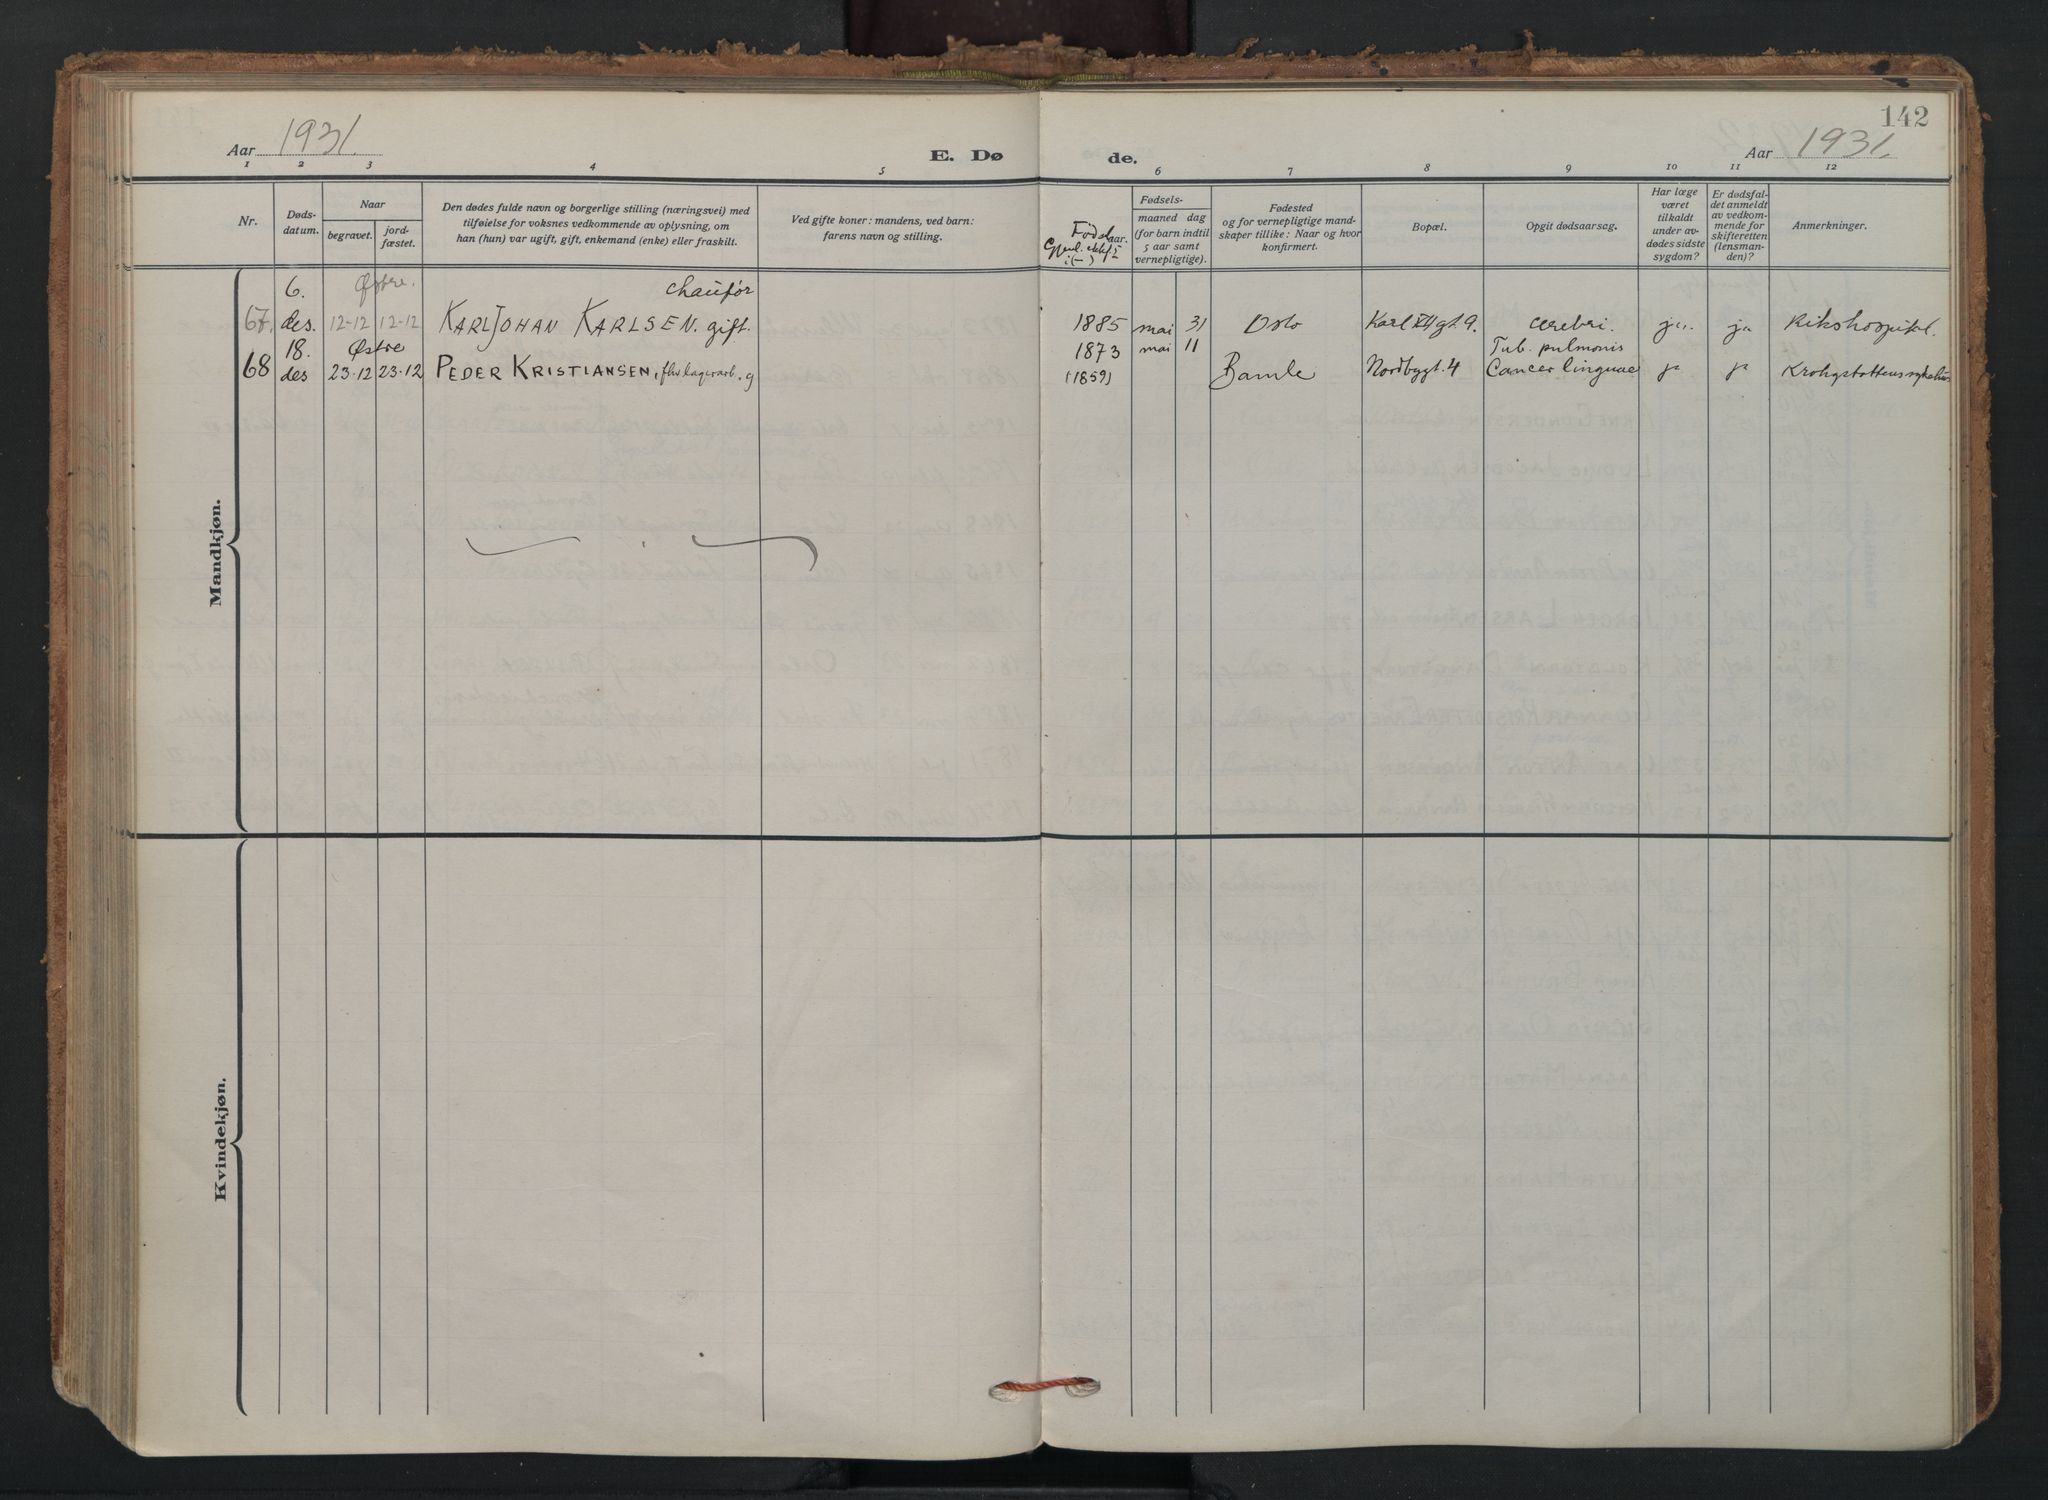 142
Aar 1931. E. Dø de. Aar 1931.
1 2 3 4 5 6 7 8 9 10 11 12
Nr.
Døds-
datum.
Naar
begravet.
jord-
fæstet.
Den dødes fulde navn og borgerlige stilling (næringsvei) med
tilføielse for voksnes vedkommende av oplysning, om
han (hun) var ugift, gift, enkemand (enke) eller fraskilt.
Ved gifte koner: mandens, ved barn:
farens navn og stilling.
Fødselsaar.
Fødsels-
maaned dag
(for barn indtil
5 aar samt
vernepligtige).
Fødested
og for vernepligtige mand-
skaper tillike: Naar og hvor
konfirmert.
Bopæl.
Opgit dødsaarsag.
Har læge
været
tilkaldt
under av-
dødes sidste
sygdom?
Er dødsfal-
det anmeldt
av vedkom-
mende for
skifteretten
(lensman-
den)?
Anmerkninger.
Mandkjøn.
6. Østre. chaufør
67. des. 12-12 12-12 KARL JOHAN KARLSEN. gift. 1885 mai 31 Oslo Karl XII gt 9. cerebri. ja. ja Rikshospital.
18. Østre 1873 mai 11 Tub. pulmonis
68 des 23-12 23-12 PEDER KRISTIANSEN, fhv. lagerarb. g (1859) Bamle Nordbygt. 4 Cancer linguae ja ja Krohgstøttens sykehus
Kvindekjøn.